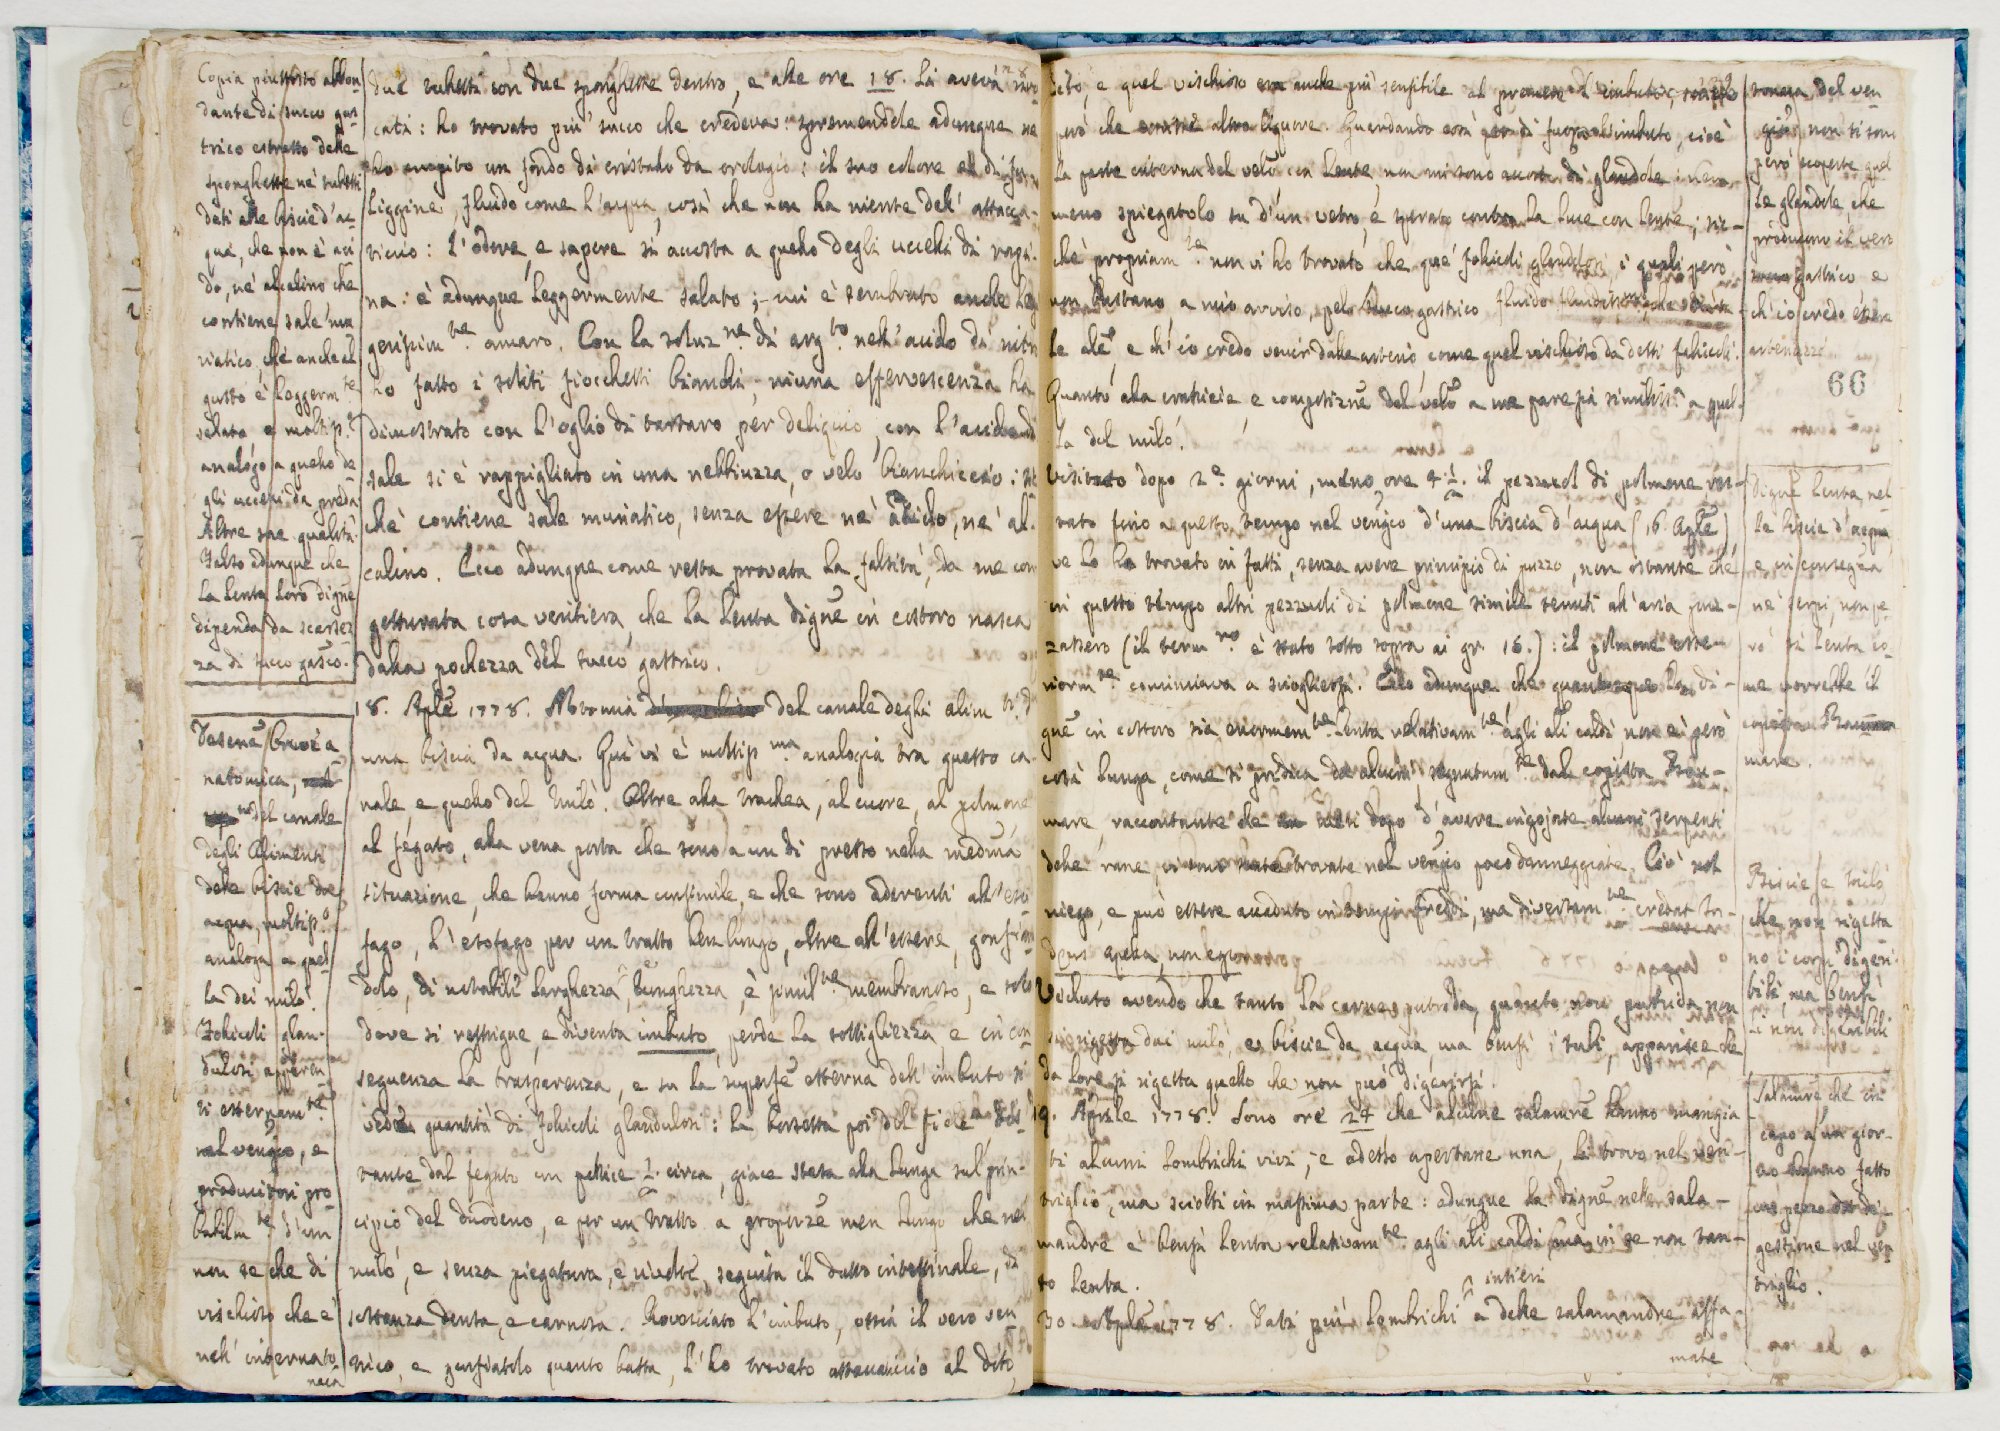 Copia piuttosto abbon-
dante di succo gas-
trico estratto dalle
sponghette ne' tubetti
dati alle biscie d'ac
qua, che non è aci
do, nè alcalino che
contiene sale mu
riatico, che anche al
gusto è leggerm.te
salato, e moltiss.o
analogo a quello de
gli uccelli da preda
Altre sue qualità.
Falso adunque che
la lenta loro digne
dipenda da scarsez
za di succo gasco.
due tubetti con due sponghette dentro, e alle ore 18. li aveva
cati: ho trovato più succo che credeva: spremendole adunque ne
ho empito un fondo di cristallo da orologio: il suo colore è di
liggine, fluido come l'acqua, così che non ha niente dell' attacca-
ticcio: l'odore, e sapore si accosta a quello degli uccelli di rapi-
na: è adunque leggermente salato; mi è sembrato anche leg
gerissim.te amaro. Con la soluz.ne di arg.to nell'acido di nitro
ho fatto i soliti fiocchetti bianchi, niuna effervescenza ha
dimostrato con l'oglio di tartaro per deliquio, con l'acido di
sale si è rappigliato in una nebbiuzza, o velo bianchiccio:
chè contiene sale muriatico, senza essere nè acido, nè al-
calino. Ecco adunque come resta provata la falsità, da me con
getturata cosa veritiera, che la lenta digne in costoro nasca
dalla pochezza del succo gastrico.
Disegne breve a
natomica,
del canale
degli alimenti
delle biscie da
acqua, moltiss.o
analoga a quel
la dei milò.
Follicoli glan-
dulosi apparen
ti esternam.te
nel vengio, e
produttori pro
babilm.te d'un
non so che di
vischioso che è
nell' interna to
naca
18. Aple 1778. Notomia del canale degli alim.ti d'
una biscia da acqua. Qui vi è moltiss.ma analogia tra questo ca
nale, e quello del milò. Oltre alla trachea, al cuore, al polmone
al fegato, alla vena porta che sono a un di presso nella medma
situazione, che hanno forma consimile, e che sono aderenti all'eso
fago, l'esofago per un tratto ben lungo, oltre all'essere, gonfian
dolo, di notabili larghezza, lunghezza, è simil.te membranoso, e solo
dove si restrigne, e diventa imbuto, perde la sottigliezza e in con
seguenza la trasparenza, e su la superfe esterna dell'imbuto si
vede quantità di follicoli glandulosi: la borsetta poi del fiele
tante dal fegato un pollice ½ circa, giace stesa alla lunga sul prin-
cipio del duodeno, e per un tratto a proporze men lungo che nei
milò, e senza piegatura, e rivolte, seguita il dutto intestinale, di
sostanza densa, e carnosa. Rovesciato l'imbuto, ossia il vero ven
trico, e gonfiatolo quanto basta, l'ho trovato attaccaticcio al dito,
dito, e quel vischioso era anche più sensibile al premere l'imbuto,
però che altro liquore. Guardando così per di fuori l'imbuto, cioè
la parte interna del velo con lente, non mi sono accorto di glandole:
meno spiegatolo su d'un vetro, e sperato contro la luce con lente; sic-
chè propriam.te non vi ho trovato che que' follicoli glandolosi i quali però
non bastano a mio avviso, pel succo gastrico fluido
le ale, e ch'io credo venir dalle arterie, come quel vischioso da detti follicoli.
Quanto alla crassizie e composizne del velo a me pare sia simili.ma a quel-
la del milò.
Visitato dopo 2.e giorni, meno ore 4 ½. il pezzuol di polmone res-
tato fino a questo tempo nel vengio d'una biscia d'acqua (16 Aple)
ve lo ho trovato in fatti, senza avere principio di puzzo, non ostante che
in questo tempo altri pezzuoli di polmone simili tenuti all'aria puz-
zassero (il term.ro è stato sotto sopra ai gr. 16.): il polmone este-
riorm.te cominciava a sciogliersi. Ecco adunque che quantunque la di-
gne in costoro sia enormem.te lenta relativam.te agli ali caldi, non è però
così lunga, come si predica da alcuni, segnatam.te dal copista Bau-
mare, raccontante che dopo d'avere ingojate alcuni serpenti
delle rane, si sono trovate nel vengio poco danneggiate. Ciò not
niego, e può essere accaduto in tempi freddi, ma diversam.te credat Ju-
deus apella, non ego.
Veduto avendo che tanto la carne putrida, quanto non putrida non
si rigetta dai milò, e biscie da acqua, ma bensì i tubi, apparisce che
da loro si rigetta quello che non può digerirsi.
19. Aprile 1778. Sono ore 24 che alcune salamre hanno mangia
ti alcuni lombrichi vivi, e adesso apertane una, li trovo nel ven-
triglio, ma sciolti in massima parte: adunque la digne nelle sala-
mandre è bensì lenta relativam.te agli ali caldi ma in se non tan-
to lenta.
20 Aple 1778. Dati più lombrichi intieri a delle salamandre affa-
mate
tonaca del ven
gio, non si sono
però scoperte quel
le glandole, che
producono il vero
succo gastrico e
ch'io credo essere
arteriuzze.
66
Digne lenta nel
le biscie d'acqua,
e in consegza
ne' serpi, non pe
rò sì lenta co-
me vorrebbe il
copista Bau
mare.
Biscie, e milò
che non rigetta
no i corpi digeri
bili, ma bensì
li non digeribili
Salamre che in
capo a un gior-
no hanno fatto
un pezzo di di-
gestione nel ven
triglio.